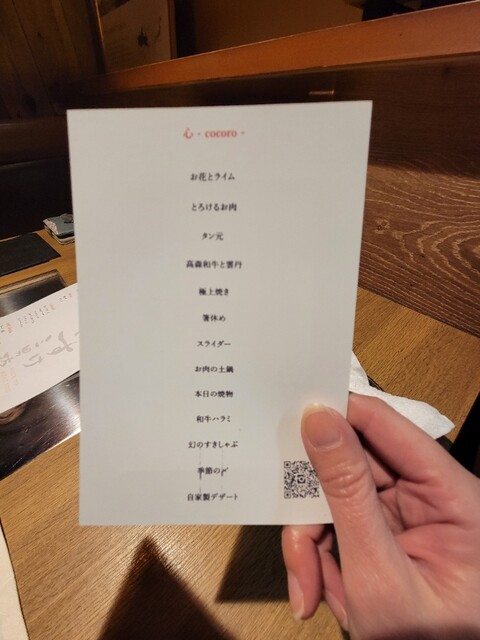 心 - cocoro -
お花とライム
とろけるお肉
タン元
高森和牛と雲丹
極上焼き
箸休め
スライダー
お肉の土鍋
本日の焼物
和牛ハラミ
幻のすきしゃぶ
季節の〆
自家製デザート